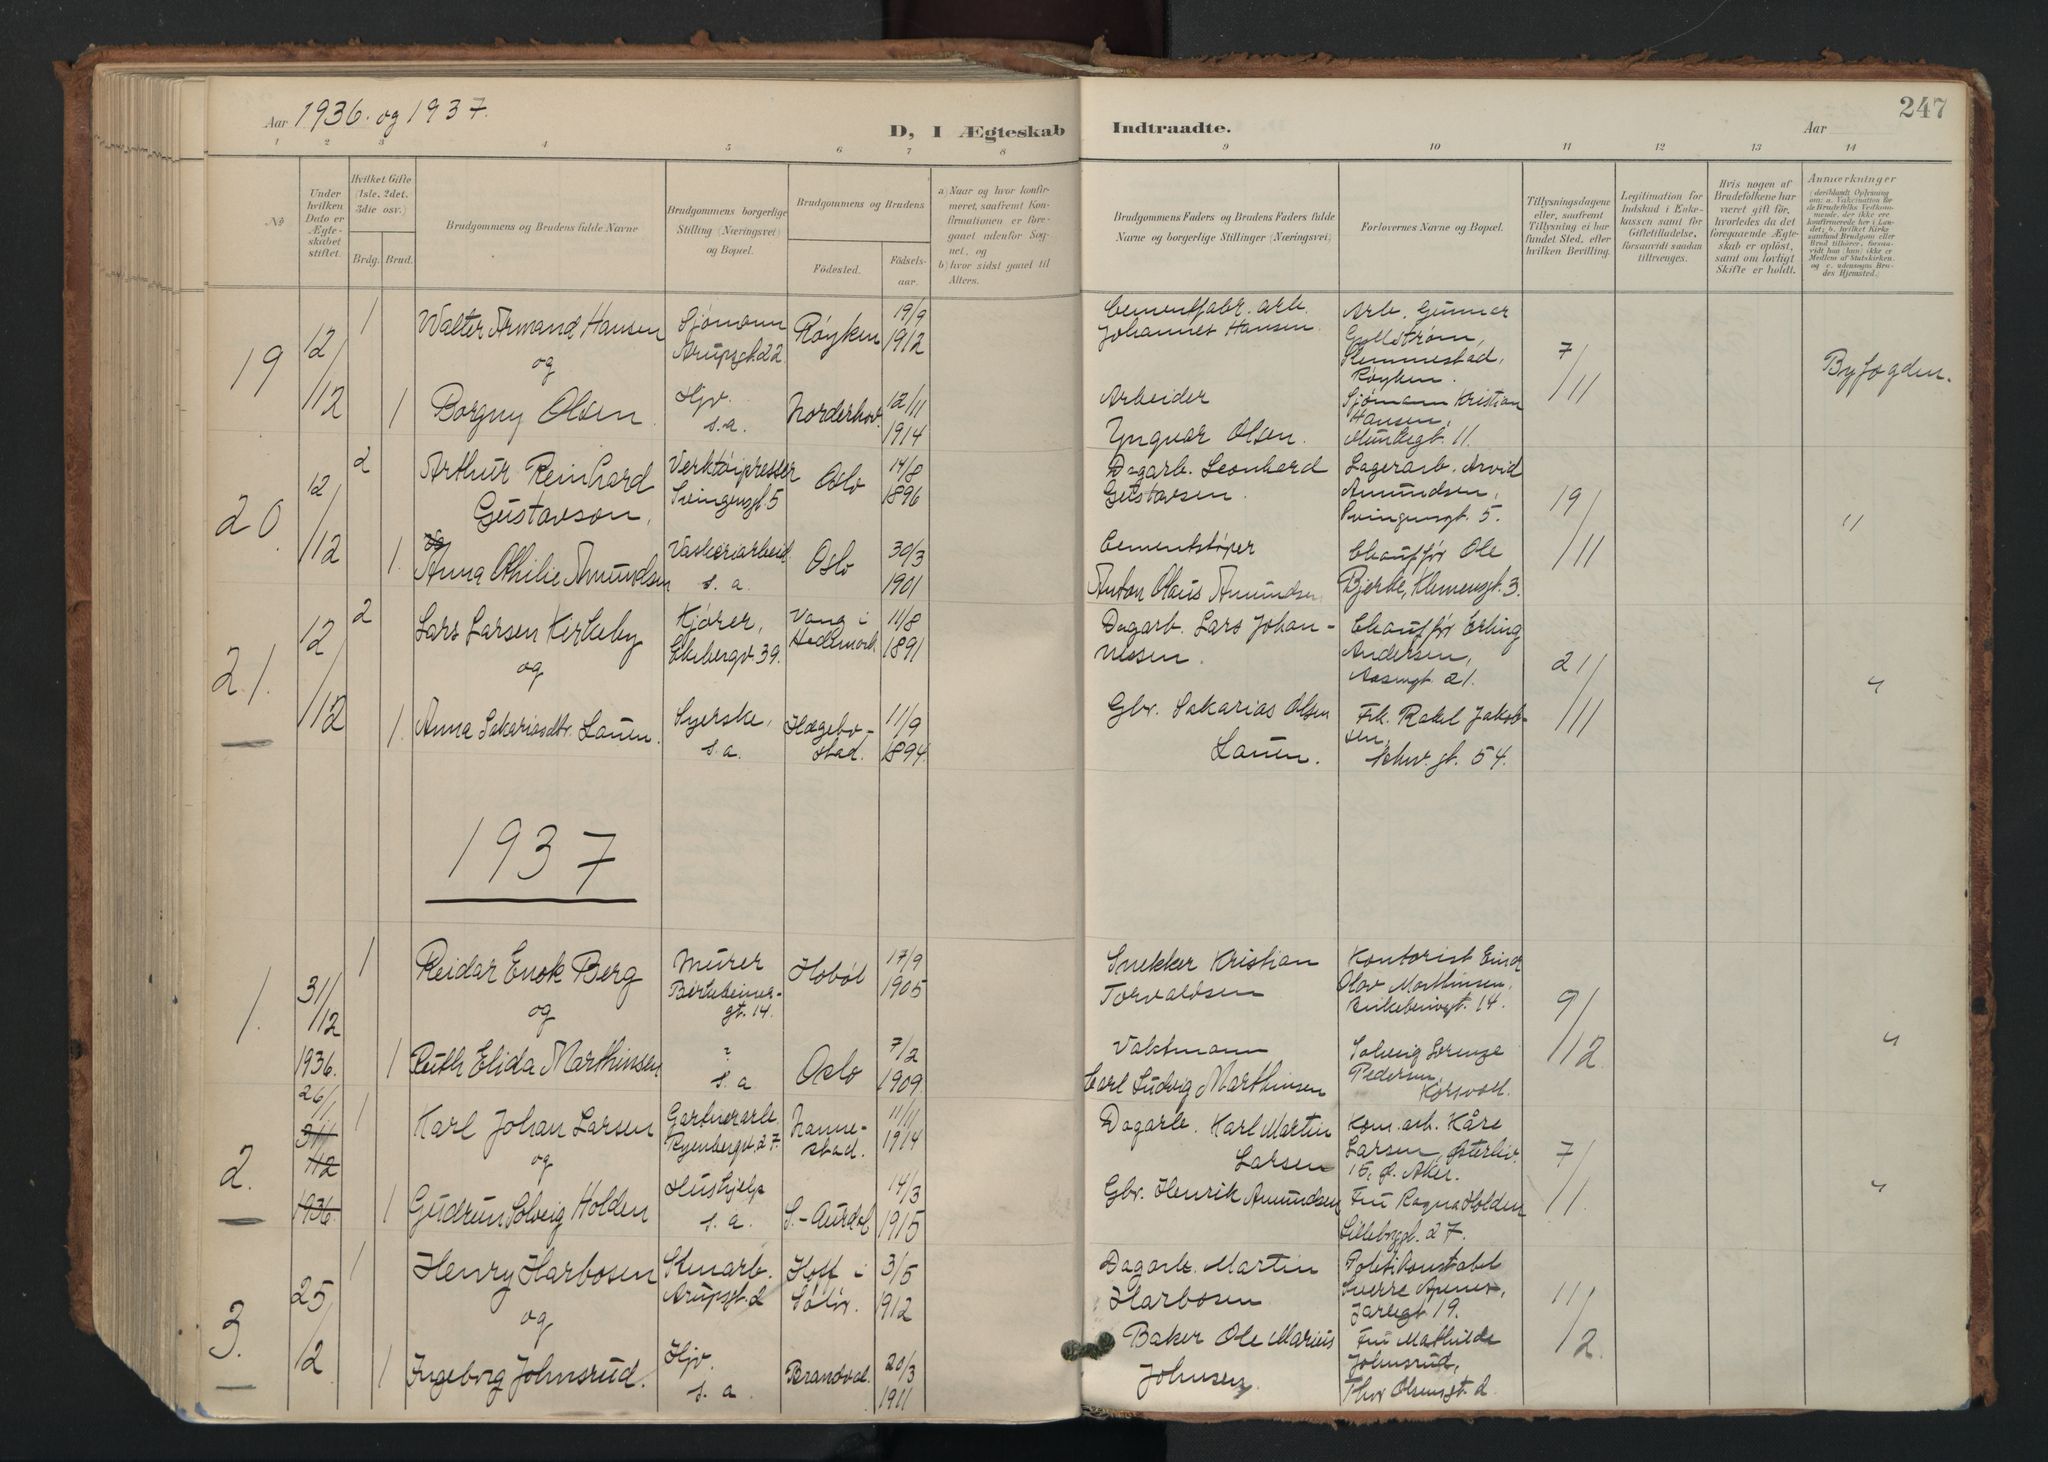 Aar 1936. og 1937.
D, I Ægteskab
Indtraadte.
Aar
247
1 2 3 4 5 6 7 8 9 10 11 12 13 14
No
Under hvilken Dato er Ægteskabet stiftet.
Hvilket Gifte (1ste, 2det, 3die osv.)
Brdg. Brud.
Brudgommens og Brudens fulde Navne
Brudgommens borgerlige Stilling (Næringsvei) og Bopæl.
Brudgommens og Brudens
Fødested.
Fødselsaar.
a) Naar og hvor konfirmeret, saafremt Konfirmationen er foregaaet udenfor Sognet, og
b) hvor sidst gaaet til Alters.
Brudgommens Faders og Brudens Faders fulde Navne og borgerlige Stillinger (Næringsvei)
Forlovernes Navne og Bopæl.
Tillysningsdagene eller, saafremt Tillysning ei har fundet Sted, efter hvilken Bevilling.
Legitimation for Indskud i Enkekassen samt for Giftetilladelse, forsaavidt saadan tiltrænges.
Hvis nogen af Brudefolkene har været gift før, hvorledes da det foregaaende Ægteskab er opløst, samt om lovligt Skifte er holdt.
Anmærkninger
19
12/12
1
Walter Armand Hansen
og
1
Borgny Olsen
Sjømann
Arupsgt. 22
Hjv.
s.a.
Røyken
Norderhov.
19/9
1912
12/11
1914
Cementfabr. arb.
Johannes Hansen.
Arbeider
Yngvar Olsen.
Arb. Gunnar
Gullstrøm,
Slemmestad,
Røyken.
Sjømann Kristian
Hansen,
Munkegt. 11.
7/11
Byfogden.
20.
12/12
2
Arthur Reinhard
Gustavson,
1.
Anna Othilie Amundsen
Verktøipresser
Svingensgt. 5
Vaskeriarbeid.
s. a.
Oslo
Oslo
14/8
1896
30/3
1901
Dagarb. Leonhard
Gustavsen.
Cementstøper
Anton Olaus Amundsen
Lagerarb. Arvid
Amundsen,
Svingensgt. 5.
Chauffør Ole
Bjerke, Klemensgt. 3.
19/11
"
21.
12/12
2
Lars Larsen Kirkeby
og
1.
Anna Sakariasdtr. Lauen.
Kjører,
Ekebergv. 39.
Syerske,
s. a.
Vang i
Hedemark
Hægebostad.
11/8
1891
11/9
1894.
Dagarb. Lars Johannessen.
Gbr. Sakarias Olsen
Lauen.
Chauffør Erling
Andersen,
Aasengt. 21.
Frk. Rakel Jakobsen,
Schw. gt. 54.
21/11
"
1937
1.
31/12
1936.
1
Reidar Enok Berg
og
1
Ruth Elida Marthinsen
Murer
Birkebeinergt. 14.
?
s. a
Hobøl
Oslo
17/9
1905
7/2
1909
Snekker Kristian
Torvaldsen
Vaktmann
Carl Ludvig Marthinsen
Kontorist Einar
Olav Marthinsen,
Birkebeinergt. 14.
Solveig Lorenze
Pedersen,
Korsvoll.
9/12
"
2.
26/1
31/12
1936.
1
Karl Johan Larsen
og
1
Gudrun Solveig Holden
Gartnerarb.
Ryenbergv. 27.
Hushjelp
s. a.
Nannestad.
S.-Aurdal
11/11
1914
14/3
1915
Dagarb. Karl Martin
Larsen
Gbr. Henrik Amundsen
Kom. arb. Kåre
Larsen, Østerliv.
15, Ø. Aker.
Fru Ragna Holden
27.
7/1.
"
3.
25/2
1
Henry Harbosen
og
1
Ingeborg Johnsrud.
Stenarb.
Arupsgt. 2
Hjv.
s. a.
Hoff i
Solør.
Brandval.
3/5
1912
20/3
1911
Dagarb. Martin
Harbosen
Baker Ole Marius
Johnsen
Politikonstabel
Sverre
Jarlegt. 19.
Fru Mathilde
Johnsrud,
Thor Olsensgt. 2.
11/2.